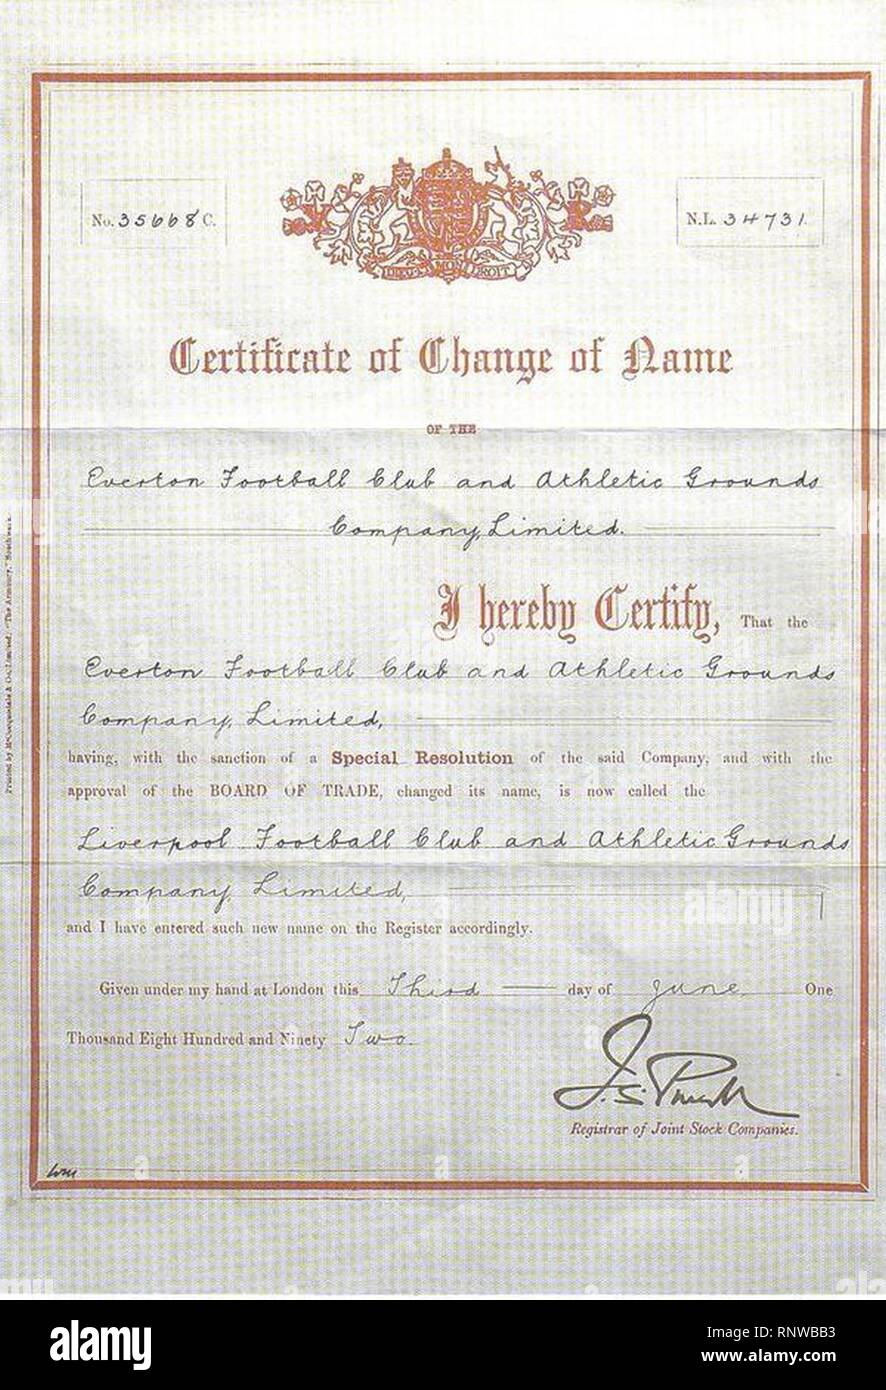 No. 35668 C.
N.L. 34731.
DIEU ET MON DROIT
Certificate of Change of Name
OF THE
Everton Football Club and Athletic Grounds
Company, Limited.
I hereby Certify, That the
Everton Football Club and Athletic Grounds
Company, Limited,
having, with the sanction of a Special Resolution of the said Company, and with the
approval of the BOARD OF TRADE, changed its name, is now called the
Liverpool Football Club and Athletic Grounds
Company, Limited,
and I have entered such new name on the Register accordingly.
Given under my hand at London this Third day of June One
Thousand Eight Hundred and Ninety Two.
J. S. Purcell
Registrar of Joint Stock Companies.
Printed by McCorquodale & Co., Limited, "The Armoury," Southwark.
alamy
a
alamy
Image ID: RNWBB3
www.alamy.com